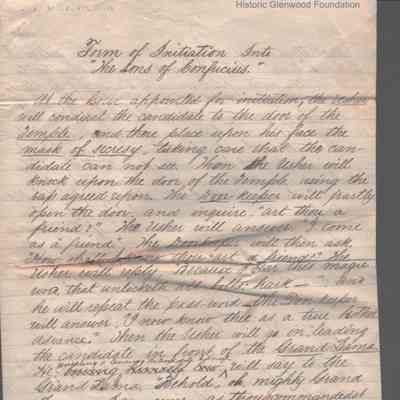 Historic Glenwood Foundation
Form of Initiation Into
"The Sons of Confucius."
At the hour appointed for initiation, the Usher
will conduct the candidate to the door of the
Temple, and there place upon his face the
mask of secresy, taking care that the can-
didate can not see. Then the Usher will
knock upon the door of the Temple using the
rap agreed upon. The Door keeper will partly
open the door, and inquire, "art thou a
friend?" The Usher will answer "I come
as a friend". The Doorkeeper will then ask,
"How shall I know thou art a friend?" The
Usher will reply, Because I bear the magic
word that unlocketh
he will repeat the pass word. The Door keeper
will answer, I now know thee as a true
advance. Then the Usher will go on leading
the candidate in front of the Grand Lama
He will say to the
Grand Lama, "Behold, oh, mighty Grand
as thou commandedst